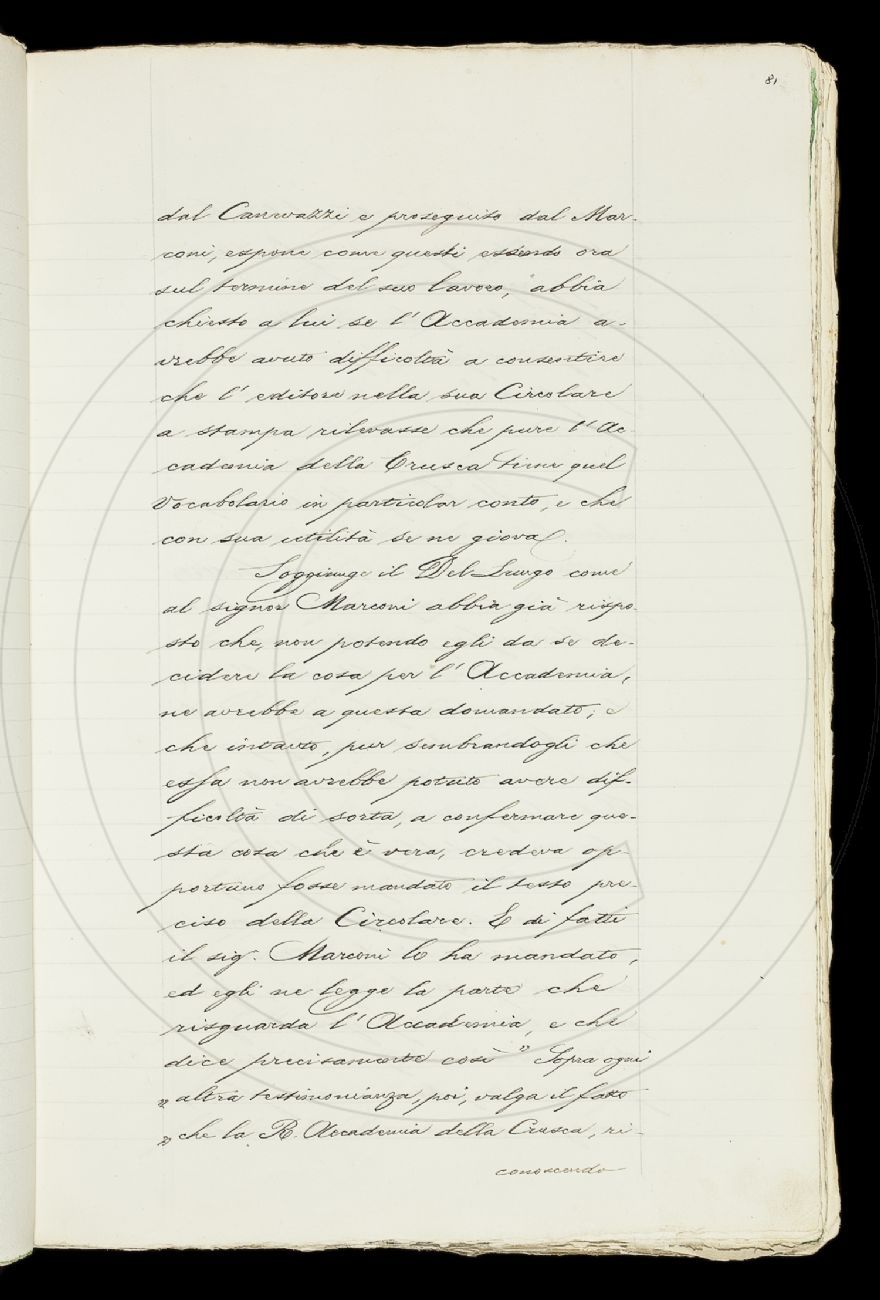 81
dal Canevazzi e proseguito dal Mar-
coni, espone come questi essendo ora
sul termine del suo lavoro, abbia
chiesto a lui se l'Accademia a-
vrebbe avuto difficoltà a consentire
che l'editore nella sua Circolare
a stampa rilevasse che pure l'Ac-
cademia della Crusca tiene quel
Vocabolario in particolar conto, e che
con sua utilità se ne giova.
Soggiunge il Del-Lungo come
al signor Marconi abbia già rispo-
sto che, non potendo egli da se de-
cidere la cosa per l'Accademia,
ne avrebbe a questa domandato; e
che intanto, pur sembrandogli che
essa non avrebbe potuto avere dif-
ficoltà di sorta, a confermare que-
sta cosa che è vera, credeva op-
portuno fosse mandato il testo pre-
ciso della Circolare. E di fatti
il sig.r Marconi lo ha mandato,
ed egli ne legge la parte che
risguarda l'Accademia, e che
dice precisamente così " Sopra ogni
" altra testimonianza, poi, valga il fatto
" che la R. Accademia della Crusca, ri-
conoscendo